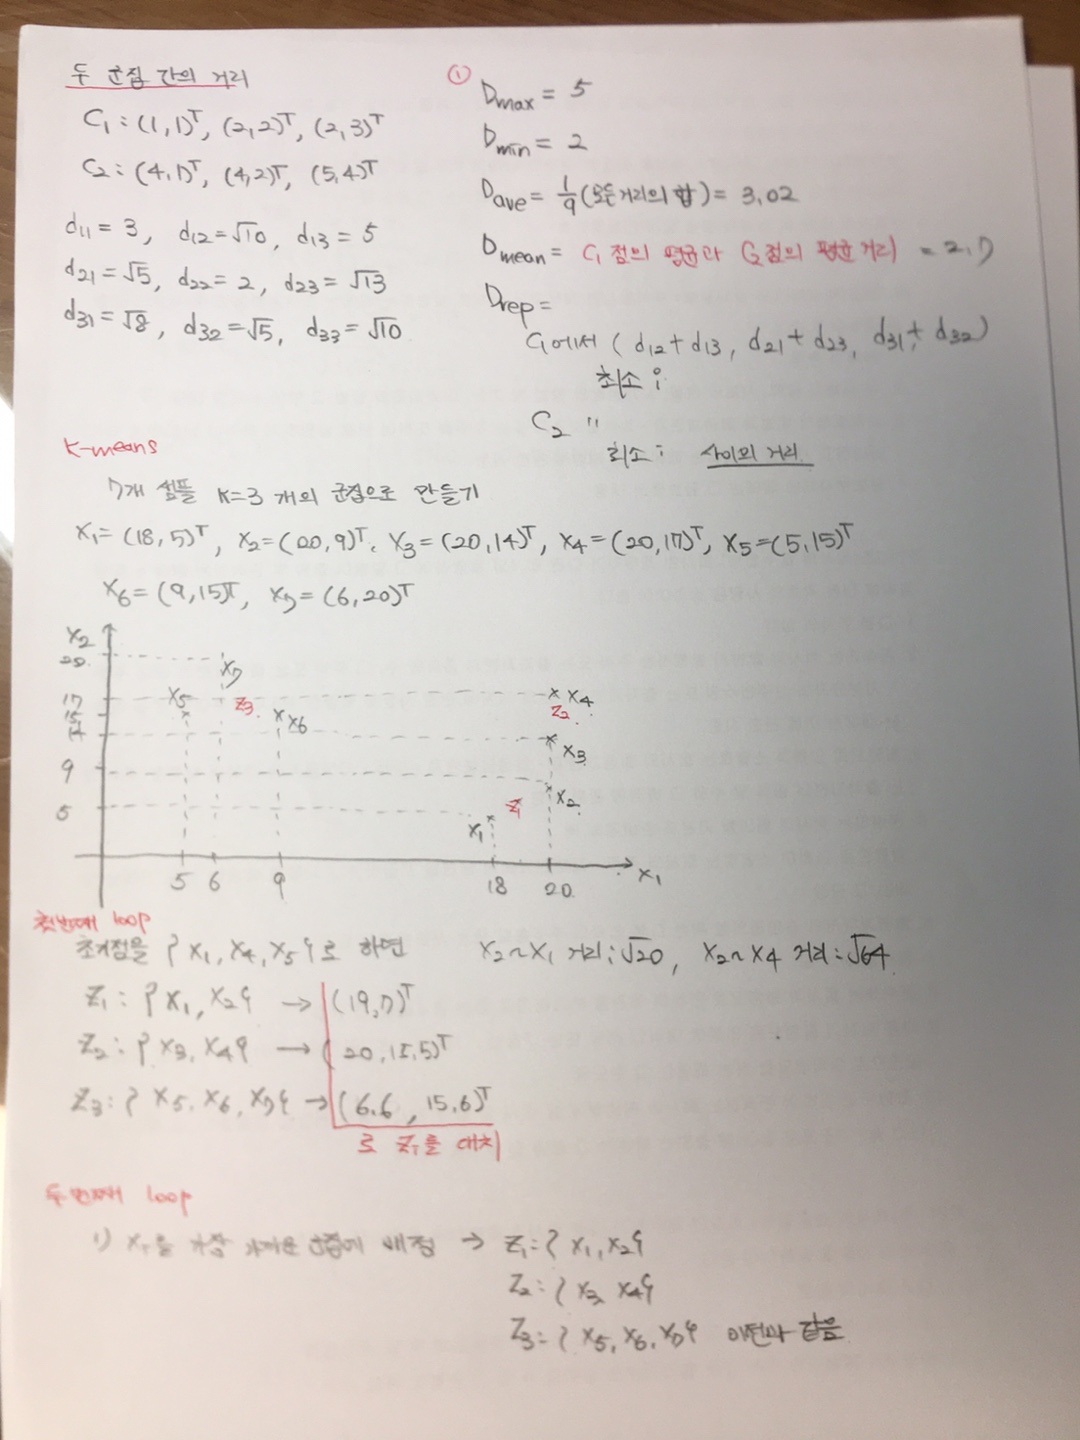 두 군집 간의 거리
C₁ : (1,1)ᵀ, (2,2)ᵀ, (2,3)ᵀ
C₂ : (4,1)ᵀ, (4,2)ᵀ, (5,4)ᵀ
d₁₁ = 3, d₁₂=√10, d₁₃ = 5
d₂₁ =√5, d₂₂= 2, d₂₃= √13
d₃₁= √8, d₃₂=√5, d₃₃= √10
①
Dmax = 5
Dmin = 2
Dave= 1/9 (모든거리의 합) = 3.02
Dmean = C₁ 점의 평균과 C₂ 점의 평균거리 = 2.7
Drep=
C₁에서 ( d₁₂+d₁₃, d₂₁+d₂₃, d₃₁+d₃₂)
최소 :
C₂ "
최소 : 사이의 거리
K-means
7개 샘플 K=3 개의 군집으로 만들기
X₁= (18,5)ᵀ, X₂=(20,9)ᵀ, X₃=(20,14)ᵀ, X₄=(20,17)ᵀ, X₅=(5,15)ᵀ
X₆=(9,15)ᵀ, X₇=(6,20)ᵀ
X₂
20
X₇
17 X₅ Z₃ X₄
15 X₆ Z₂
14 X₃
9 X₂
5 Z₁
X₁
5 6 9 18 20 X₁
첫번째 loop
초기점을 {X₁, X₄, X₅}로 하면 X₂~X₁ 거리:√20, X₂~X₄ 거리:√64
Z₁ : {X₁, X₂} → (19,7)ᵀ
Z₂ : {X₃, X₄} → (20,15,5)ᵀ
Z₃ : {X₅, X₆, X₇} → (6.6, 15.6)ᵀ
로 Zᵢ를 대치
두번째 loop
1) Xᵢ를 가장 가까운 군집에 배정 → Z₁ : {X₁, X₂}
Z₂ : {X₃ X₄}
Z₃ = {X₅, X₆, X₇} 이전과 같음